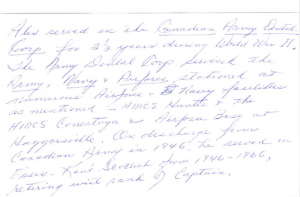 Also served in the Canadian Army Dental
Corp for 3½ years during World War II.
The Army Dental Corp serviced the
Army, Navy & Airforce stationed at
numerous Airforce & Navy facilities
as mentioned - HMCS Hunter & the
HMCS Conestoga & Airforce Base at
Haggersville. On discharge from
Canadian Army in 1946, he served in
Essex Kent Scottish from 1946-1966,
retiring with rank of Captain.